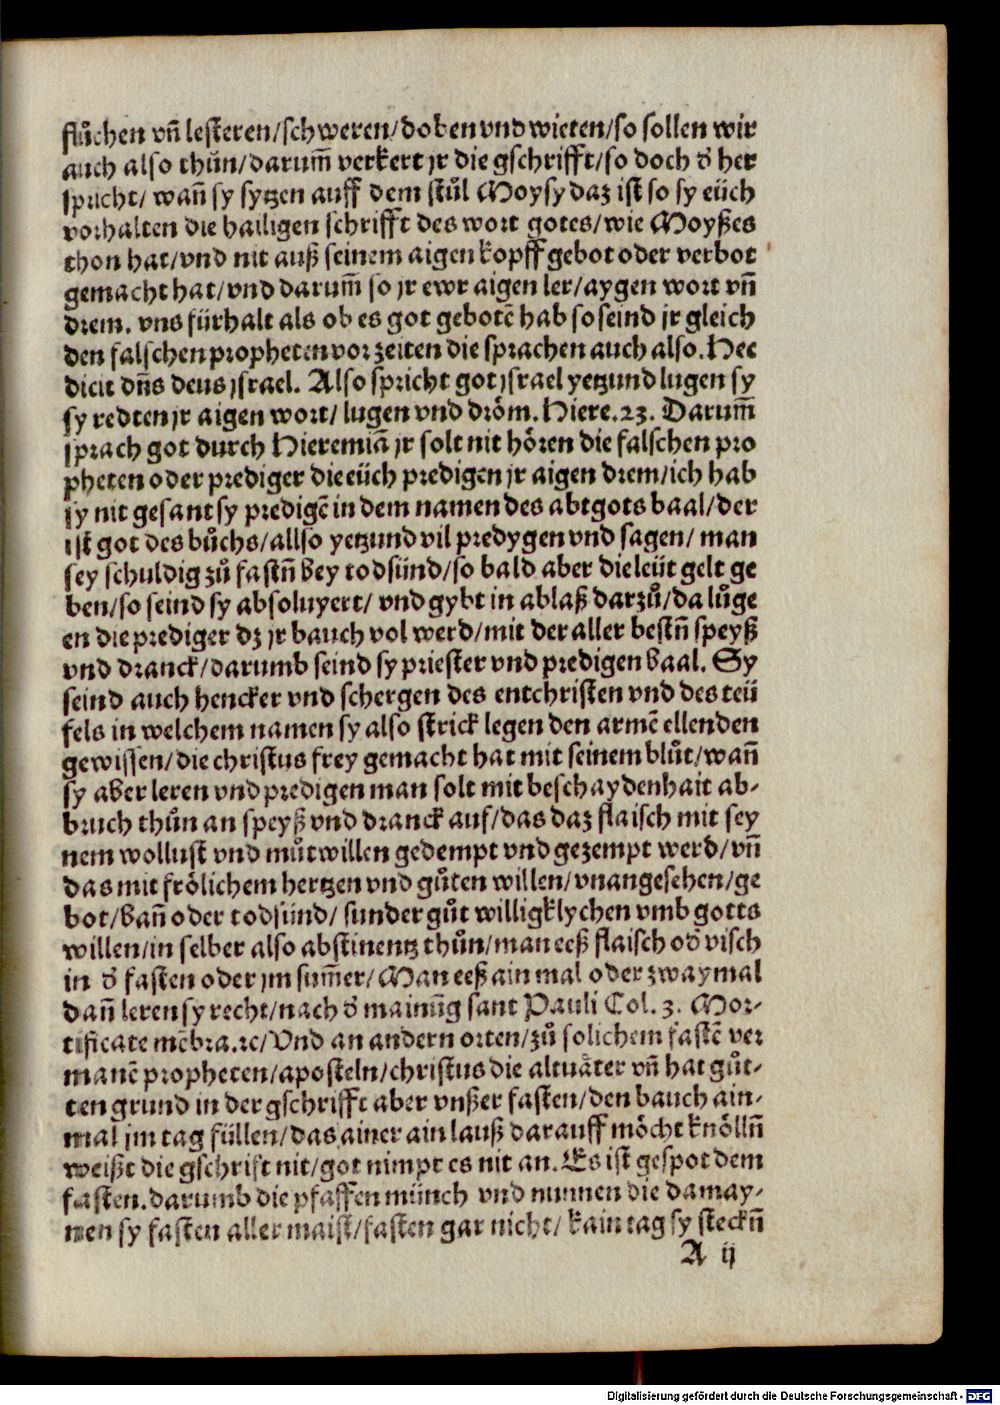 flůchen vñ lesteren/schweren/doben vnd wieten/so sollen wir
auch also thůn/darum̃ verkert jr die gschrifft/so doch d̕ her
spricht/ wañ sy sytzen auff dem stůl Moysy daz ist so sy eüch
vorhalten die hailigen schrifft des wort gotes/wie Moyßes
thon hat/vnd nit auß seinem aigen kopff gebot oder verbot
gemacht hat/vnd darum̃ so jr ewr aigen ler/aygen wort vñ
drem. vns fürhalt als ob es got gebotẽ hab so seind jr gleich
den falschen propheten vor zeiten die sprachen auch also. Hec
dicit dñs deus jsrael. Also spricht got jsrael yetzund lugen sy
sy redten jr aigen wort/ lugen vnd dröm. Hiere. 23. Darum̃
sprach got durch Hieremiã jr solt nit hören die falschen pro
pheten oder prediger die eüch predigen jr aigen drem/ich hab
sy nit gesant sy predigẽ in dem namen des abtgots baal/der
ist got des bůchs/allso yetzund vil predygen vnd sagen/ man
sey schuldig zů fastñ bey todsünd/so bald aber die leüt gelt ge
ben/so seind sy absoluyert/ vnd gybt in ablaß darzů/da lůge
en die prediger dz jr bauch vol werd/mit der aller bestñ speyß
vnd dranck/darumb seind sy priester vnd predigen baal. Sy
seind auch hencker vnd schergen des entchristen vnd des teü
fels in welchem namen sy also strick legen den armẽ ellenden
gewissen/die christus frey gemacht hat mit seinem blůt/wañ
sy aber leren vnd predigen man solt mit beschaydenhait ab-
bruch thůn an speyß vnd dranck auf/das daz flaisch mit sey
nem wollust vnd můtwillen gedempt vnd gezempt werd/vñ
das mit frölichem hertzen vnd gůten willen/vnangesehen/ge
bot/bañ oder todsünd/ sunder gůt willigklychen vmb gotts
willen/in selber also abstinentz thůn/man eeß flaisch od̕ visch
in d̕ fasten oder jm sum̃er/Man eeß ain mal oder zway mal
dañ leren sy recht/nach d̕ mainũg sant Pauli Col. 3. Mor-
tificate mẽbra.ꝛc/Vnd an andern orten/zů solichem fastẽ ver
manẽ propheten/aposteln/christus die altuäter vñ hat gůt-
ten grund in der gschrifft aber vnßer fasten/den bauch ain-
mal jm tag füllen/das ainer ain lauß darauff möcht knöllñ
weißt die gschrift nit/got nimpt es nit an. Es ist gespot dem
fasten. darumb die pfaffen münch vnd nunnen die da may-
nen sy fasten aller maist/fasten gar nicht/ kain tag sy steckñ
A ij
Digitalisierung gefördert durch die Deutsche Forschungsgemeinschaft - DFG